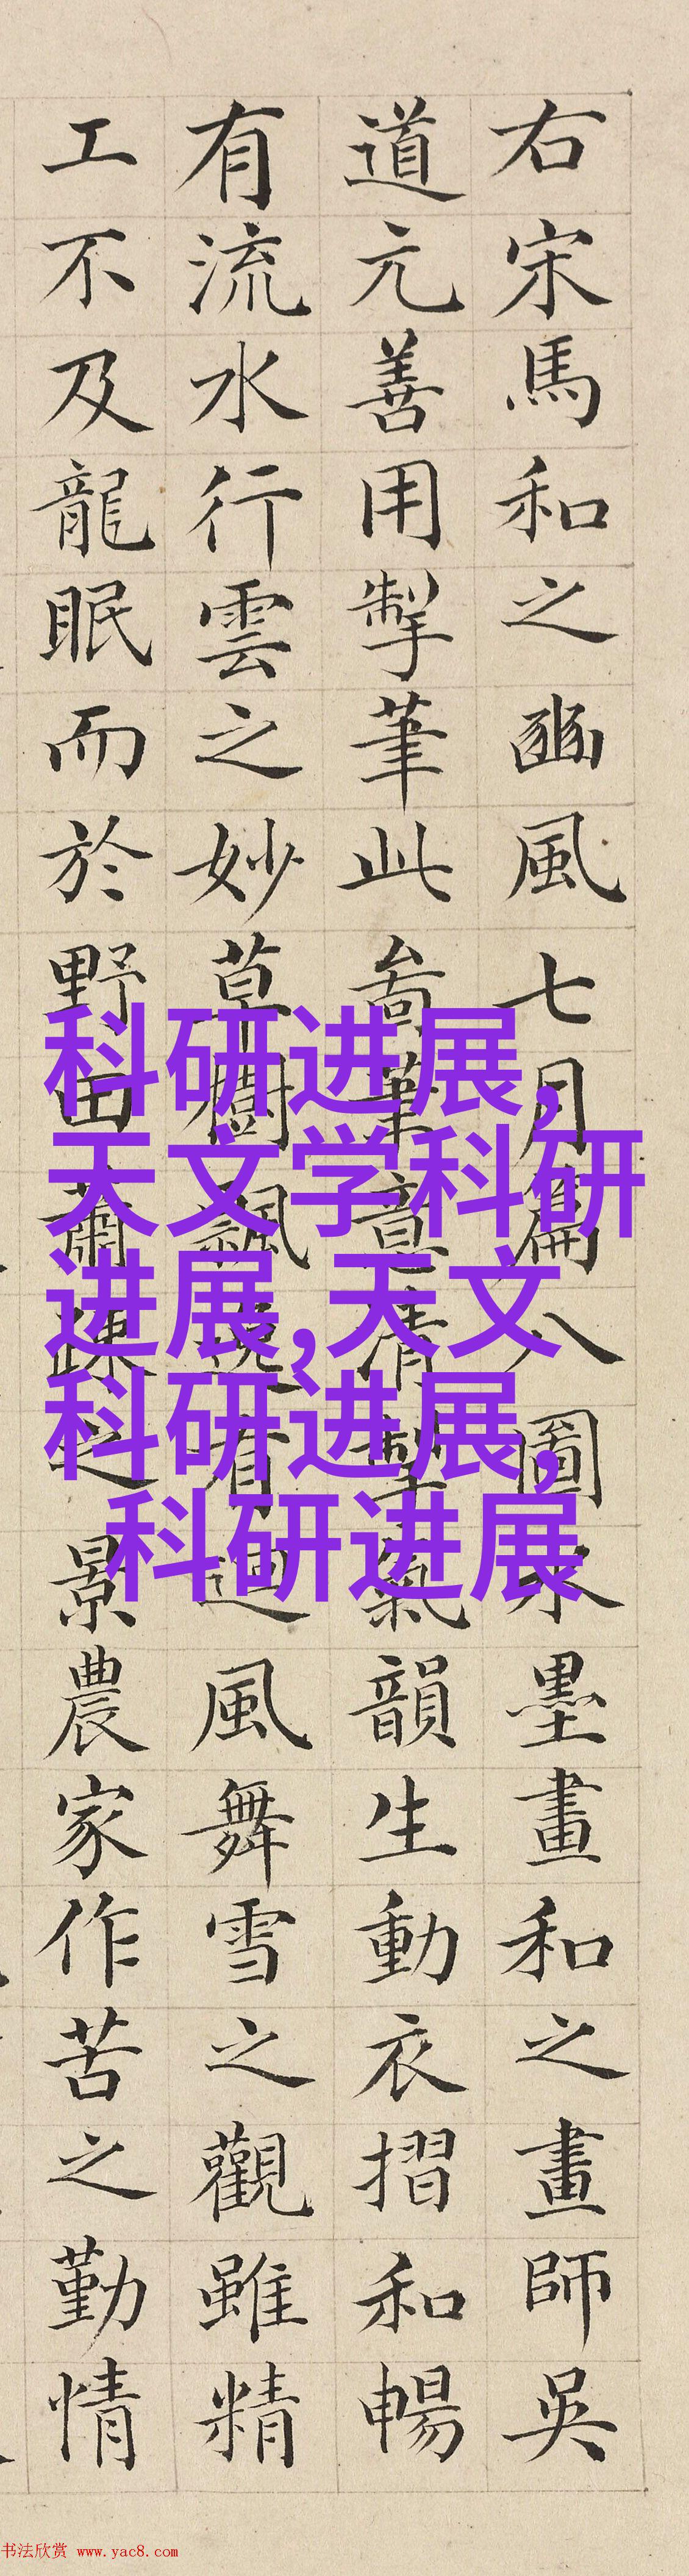 右宋馬和之豳風七月篇八圖水墨畫和之畫師吳
道元善用掣筆此啚筆意清氣韻生動衣摺和暢
有流水行雲之妙草樹飄逸有迴風舞雪之觀雖精
工不及龍眠而於野田蕭疎之景農家作苦之勤情
科研进展,
天文学科研
进展,天文
科研进展,
科研进展
书法欣赏 www.yac8.com